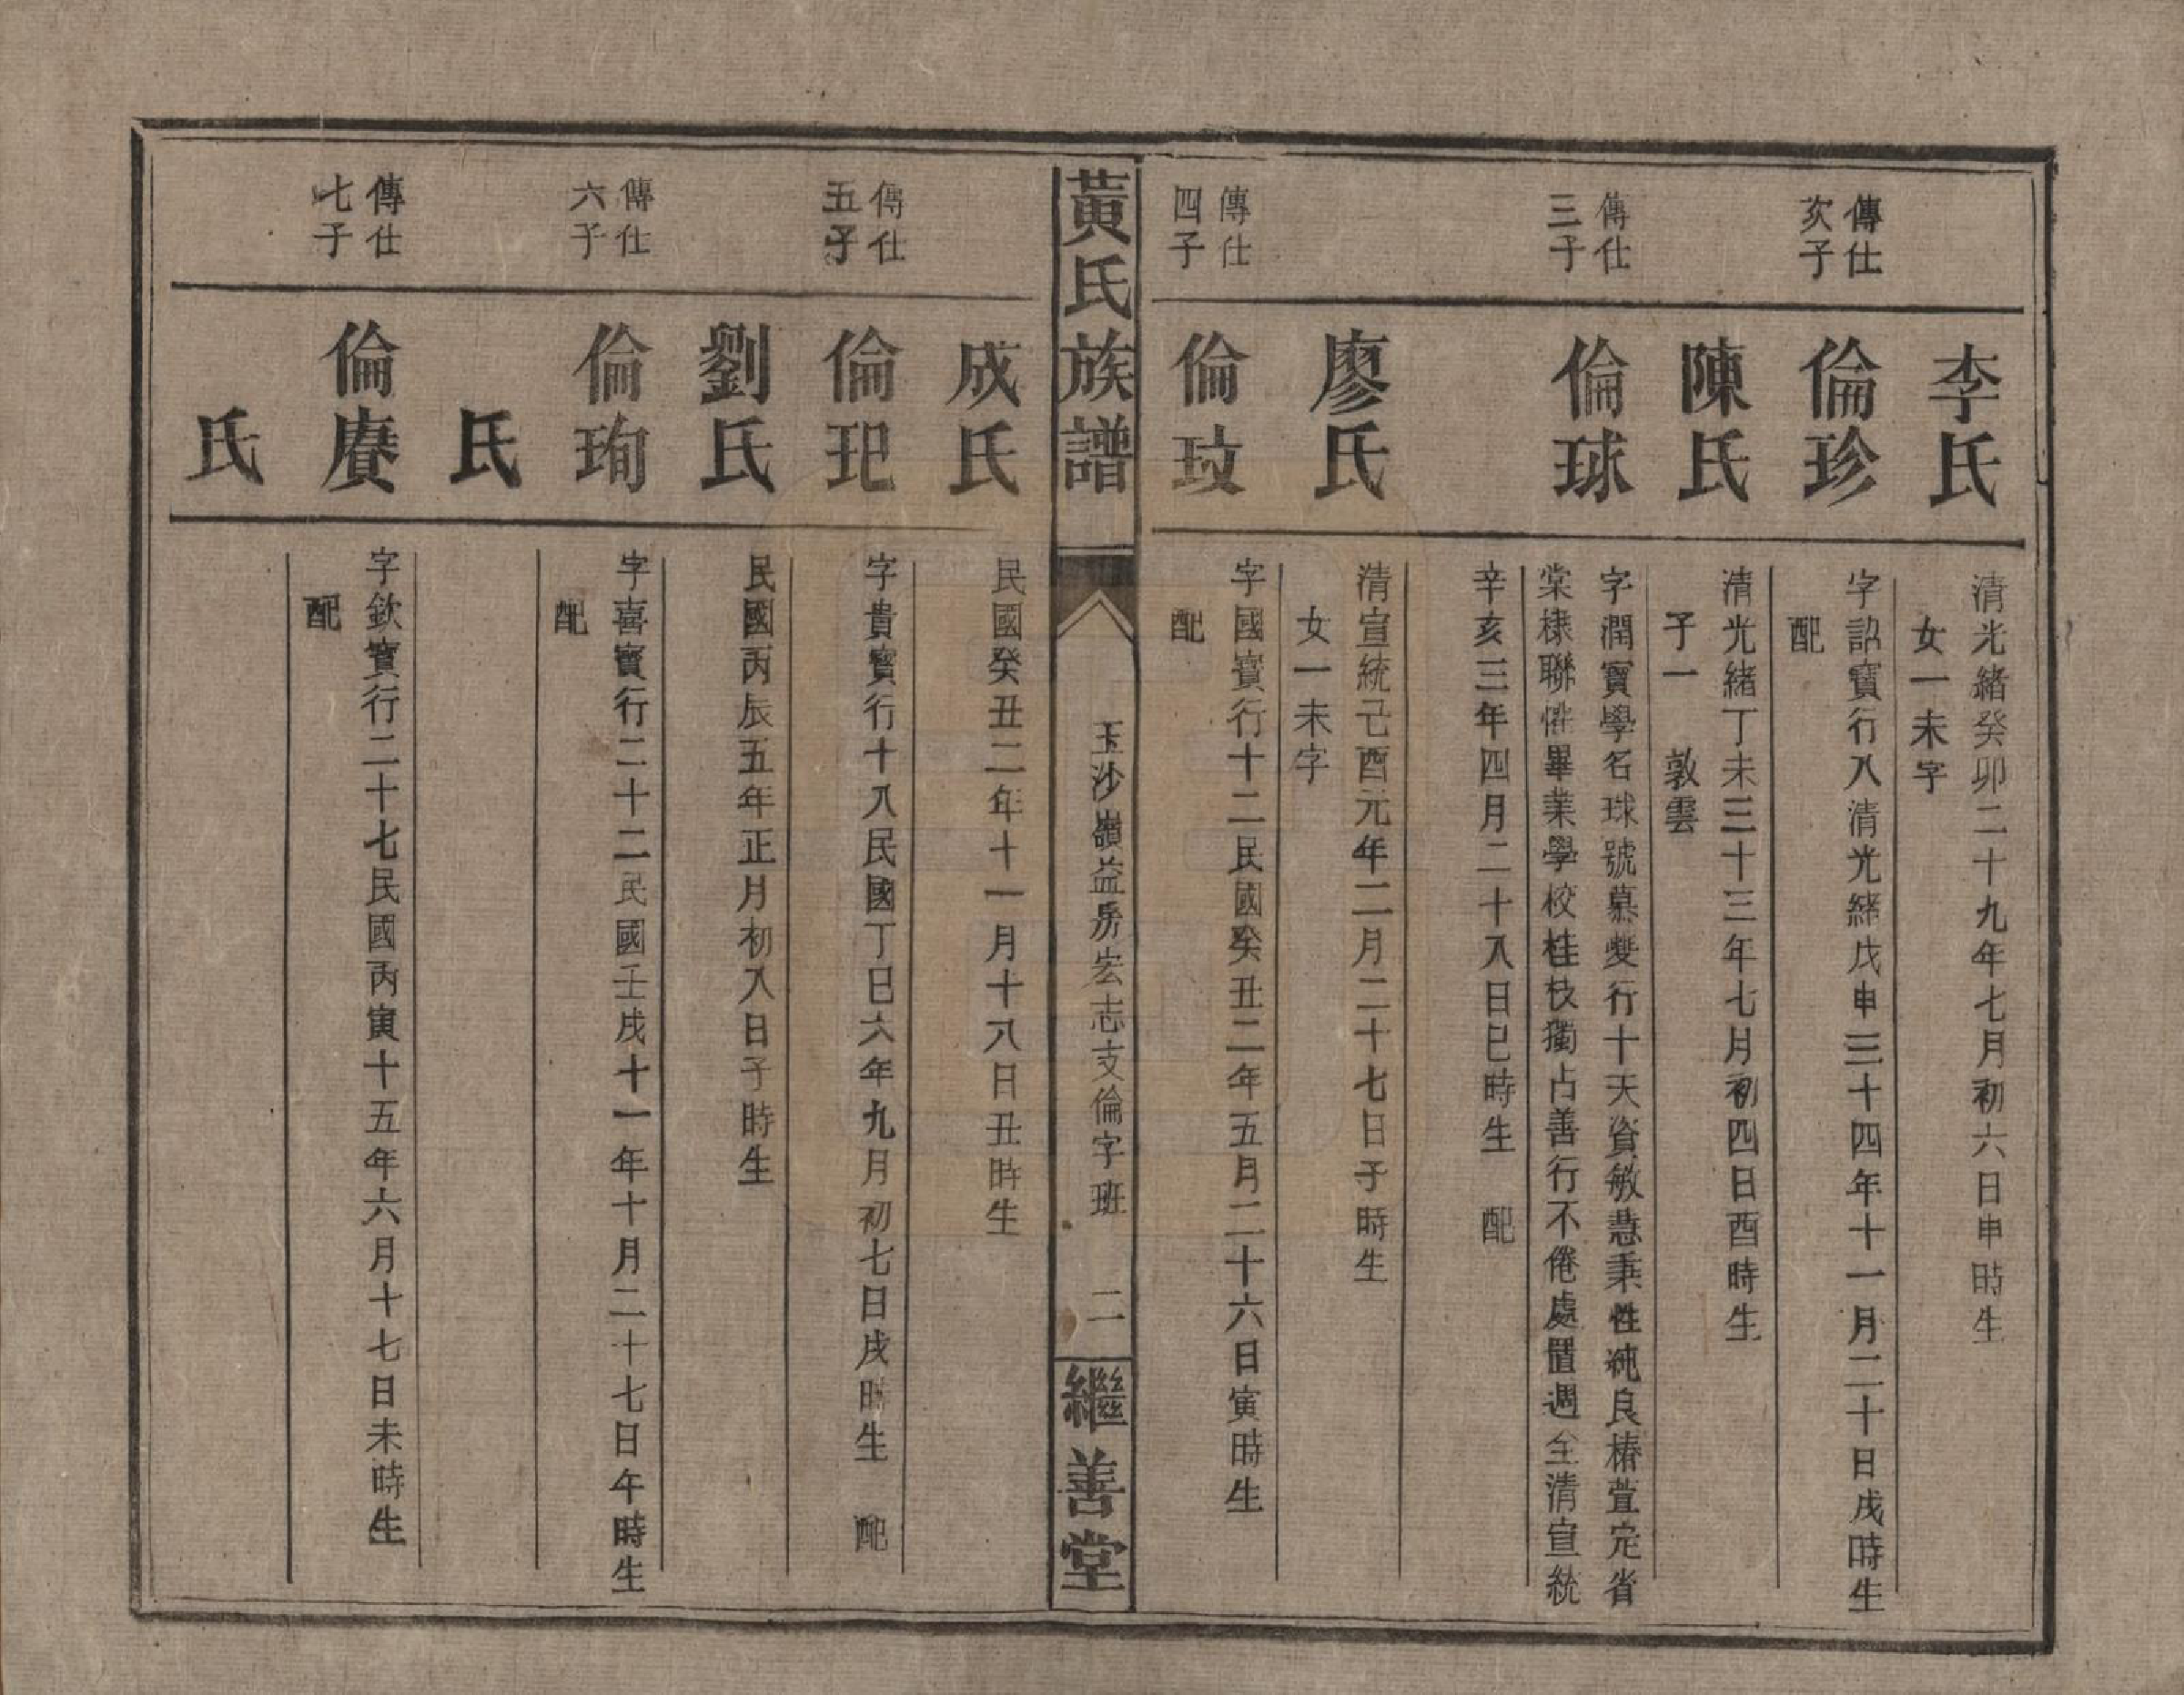 李氏
清光緒癸卯二十九年七月初六日申時生
女一未字
傳仕
次子
倫珍
字詔寶行八清光緒戊申三十四年十一月二十日戌時生
配
陳氏
清光緒丁未三十三年七月初四日酉時生
子一 敦雲
傳仕
三子
倫球
字潤寶學名球號慕雙行十天資敏慧秉性純良椿萱定省
棠棣聯懽畢業學校桂枝獨占善行不倦處置週全清宣統
辛亥三年四月二十八日巳時生 配
廖氏
清宣統己酉元年二月二十七日子時生
女一未字
傳仕
四子
倫玟
字國寶行十二民國癸丑二年五月二十六日寅時生
配
黃氏族譜
玉沙嶺益房宏志支倫字班 二
繼善堂
成氏
民國癸丑二年十一月十八日丑時生
傳仕
五子
倫玘
字貴寶行十八民國丁巳六年九月初七日戌時生 配
劉氏
民國丙辰五年正月初八日子時生
傳仕
六子
倫珣
字喜寶行二十二民國壬戌十一年十月二十七日午時生
配
氏
傳仕
七子
倫賡
字欽寶行二十七民國丙寅十五年六月十七日未時生
配
氏